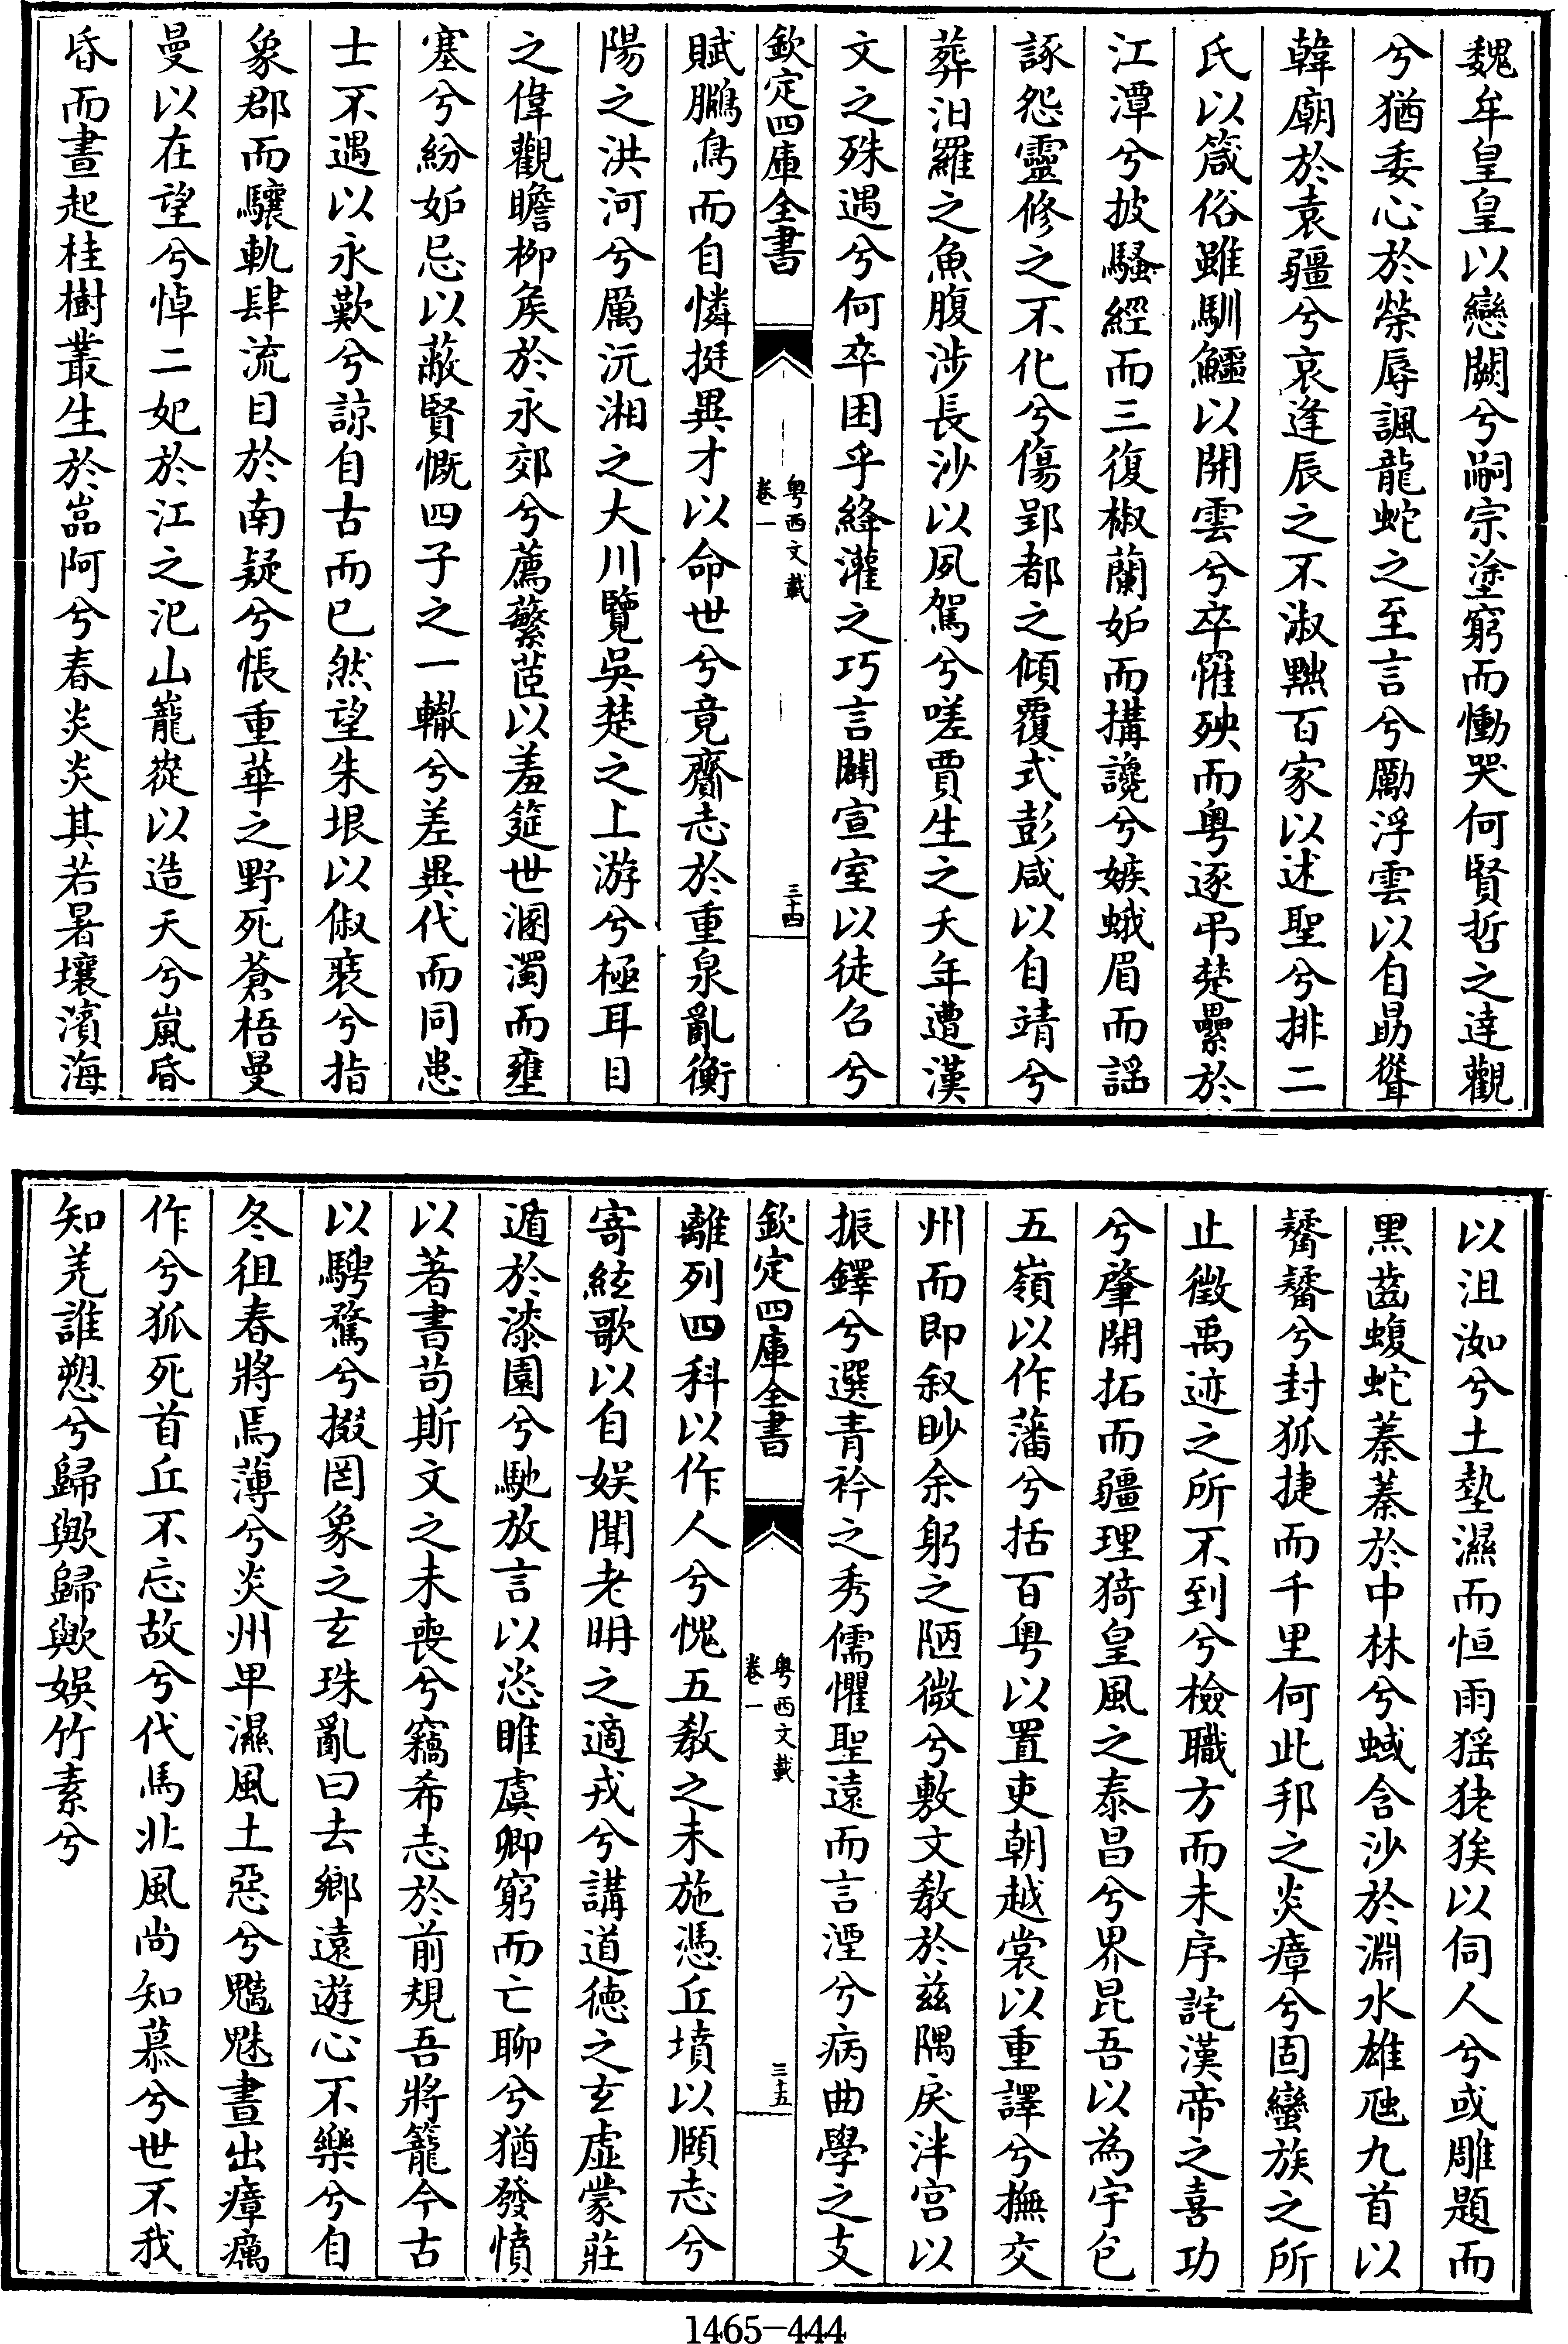 魏牟皇皇以戀闕兮嗣宗塗窮而慟哭何賢哲之達觀
兮猶委心於榮辱諷龍蛇之至言兮勵浮雲以自勗聳
韓廟於袁疆兮哀逢辰之不淑黜百家以述聖兮排二
氏以箴俗雖馴鱷以開雲兮卒罹殃而粤逐弔楚纍於
江潭兮披騷經而三復椒蘭妬而搆讒兮嫉蛾眉而謡
諑怨靈修之不化兮傷郢都之傾覆式彭咸以自靖兮
葬汨羅之魚腹涉長沙以夙駕兮嗟賈生之夭年遭漢
文之殊遇兮何卒困乎絳灌之巧言闢宣室以徒召兮
欽定四庫全書
粤西文載
卷一
三十四
賦鵩鳥而自憐挺異才以命世兮竟齎志於重泉亂衡
陽之洪河兮厲沅湘之大川覽吳楚之上游兮極耳目
之偉觀瞻柳侯於永郊兮薦蘩茝以羞筵世溷濁而壅
塞兮紛妬忌以蔽賢慨四子之一轍兮差異代而同患
士不遇以永歎兮諒自古而已然望朱垠以俶裝兮指
象郡而驤軌肆流目於南疑兮悵重華之野死蒼梧曼
曼以在望兮悼二妃於江之汜山巃嵸以造天兮嵐昏
昏而晝起桂樹叢生於嵓阿兮春炎炎其若暑壤濱海
以沮洳兮土墊濕而恒雨猺狫㺅以伺人兮或雕題而
黑齒蝮蛇蓁蓁於中林兮蜮含沙於淵水雄虺九首以
䜌䜌兮封狐捷而千里何此邦之炎瘴兮固蠻族之所
止徵禹迹之所不到兮檢職方而未序詫漢帝之喜功
兮肇開拓而疆理猗皇風之泰昌兮界昆吾以為宇包
五嶺以作藩兮括百粤以置吏朝越裳以重譯兮撫交
州而即叙眇余躬之陋微兮敷文教於兹隅戾泮宫以
振鐸兮選青衿之秀儒懼聖遠而言湮兮病曲學之支
欽定四庫全書
粤西文載
卷一
三十五
離列四科以作人兮愧五教之未施憑丘墳以頤志兮
寄絃歌以自娱聞老耼之適戎兮講道德之玄虛蒙莊
遁於漆園兮馳放言以恣睢虞卿窮而亡聊兮猶發憤
以著書茍斯文之未喪兮竊希志於前規吾將籠今古
以騁騖兮掇罔象之玄珠亂曰去鄉遠遊心不樂兮自
冬徂春將焉薄兮炎州卑濕風土惡兮魑魅晝出瘴癘
作兮狐死首丘不忘故兮代馬北風尚知慕兮世不我
知羌誰愬兮歸歟歸歟娱竹素兮
1465-444